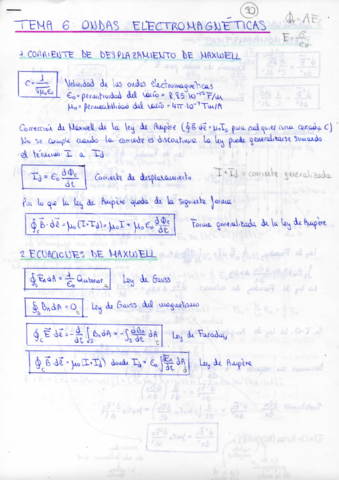 30
TEMA 6: ONDAS ELECTROMAGNÉTICAS
Φ = AE
E = σ/ε₀
1. CORRIENTE DE DESPLAZAMIENTO DE MAXWELL
c = 1/√(μ₀ε₀) Velocidad de las ondas electromagnéticas
ε₀ = permitividad del vacío = 8'85·10⁻¹² F/m
μ₀ = permeabilidad del vacío = 4π·10⁻⁷ Tm/A
Corrección de Maxwell de la ley de Ampère (∮ B dℓ = μ₀ I_c para cualquier curva cerrada C)
No se cumple cuando la corriente es discontinua. La ley puede generalizarse sumando
el término I a I_d:
I_d = ε₀ dΦe/dt Corriente de desplazamiento I + I_d = corriente generalizada
Por lo que la ley de Ampère queda de la siguiente forma:
∮c B·dℓ = μ₀(I+I_d) = μ₀I + μ₀ε₀ dΦe/dt Forma generalizada de la ley de Ampère.
2. ECUACIONES DE MAXWELL
∮s En dA = 1/ε₀ Qinterior Ley de Gauss
∮s Bn dA = 0 Ley de Gauss del magnetismo
∮c E dℓ = - d/dt ∫s Bn dA = -∫s ∂Bn/∂t dA Ley de Faraday
∮c B dℓ = μ₀(I+I_d) donde I_d = ε₀ ∫s ∂En/∂t dA Ley de Ampère